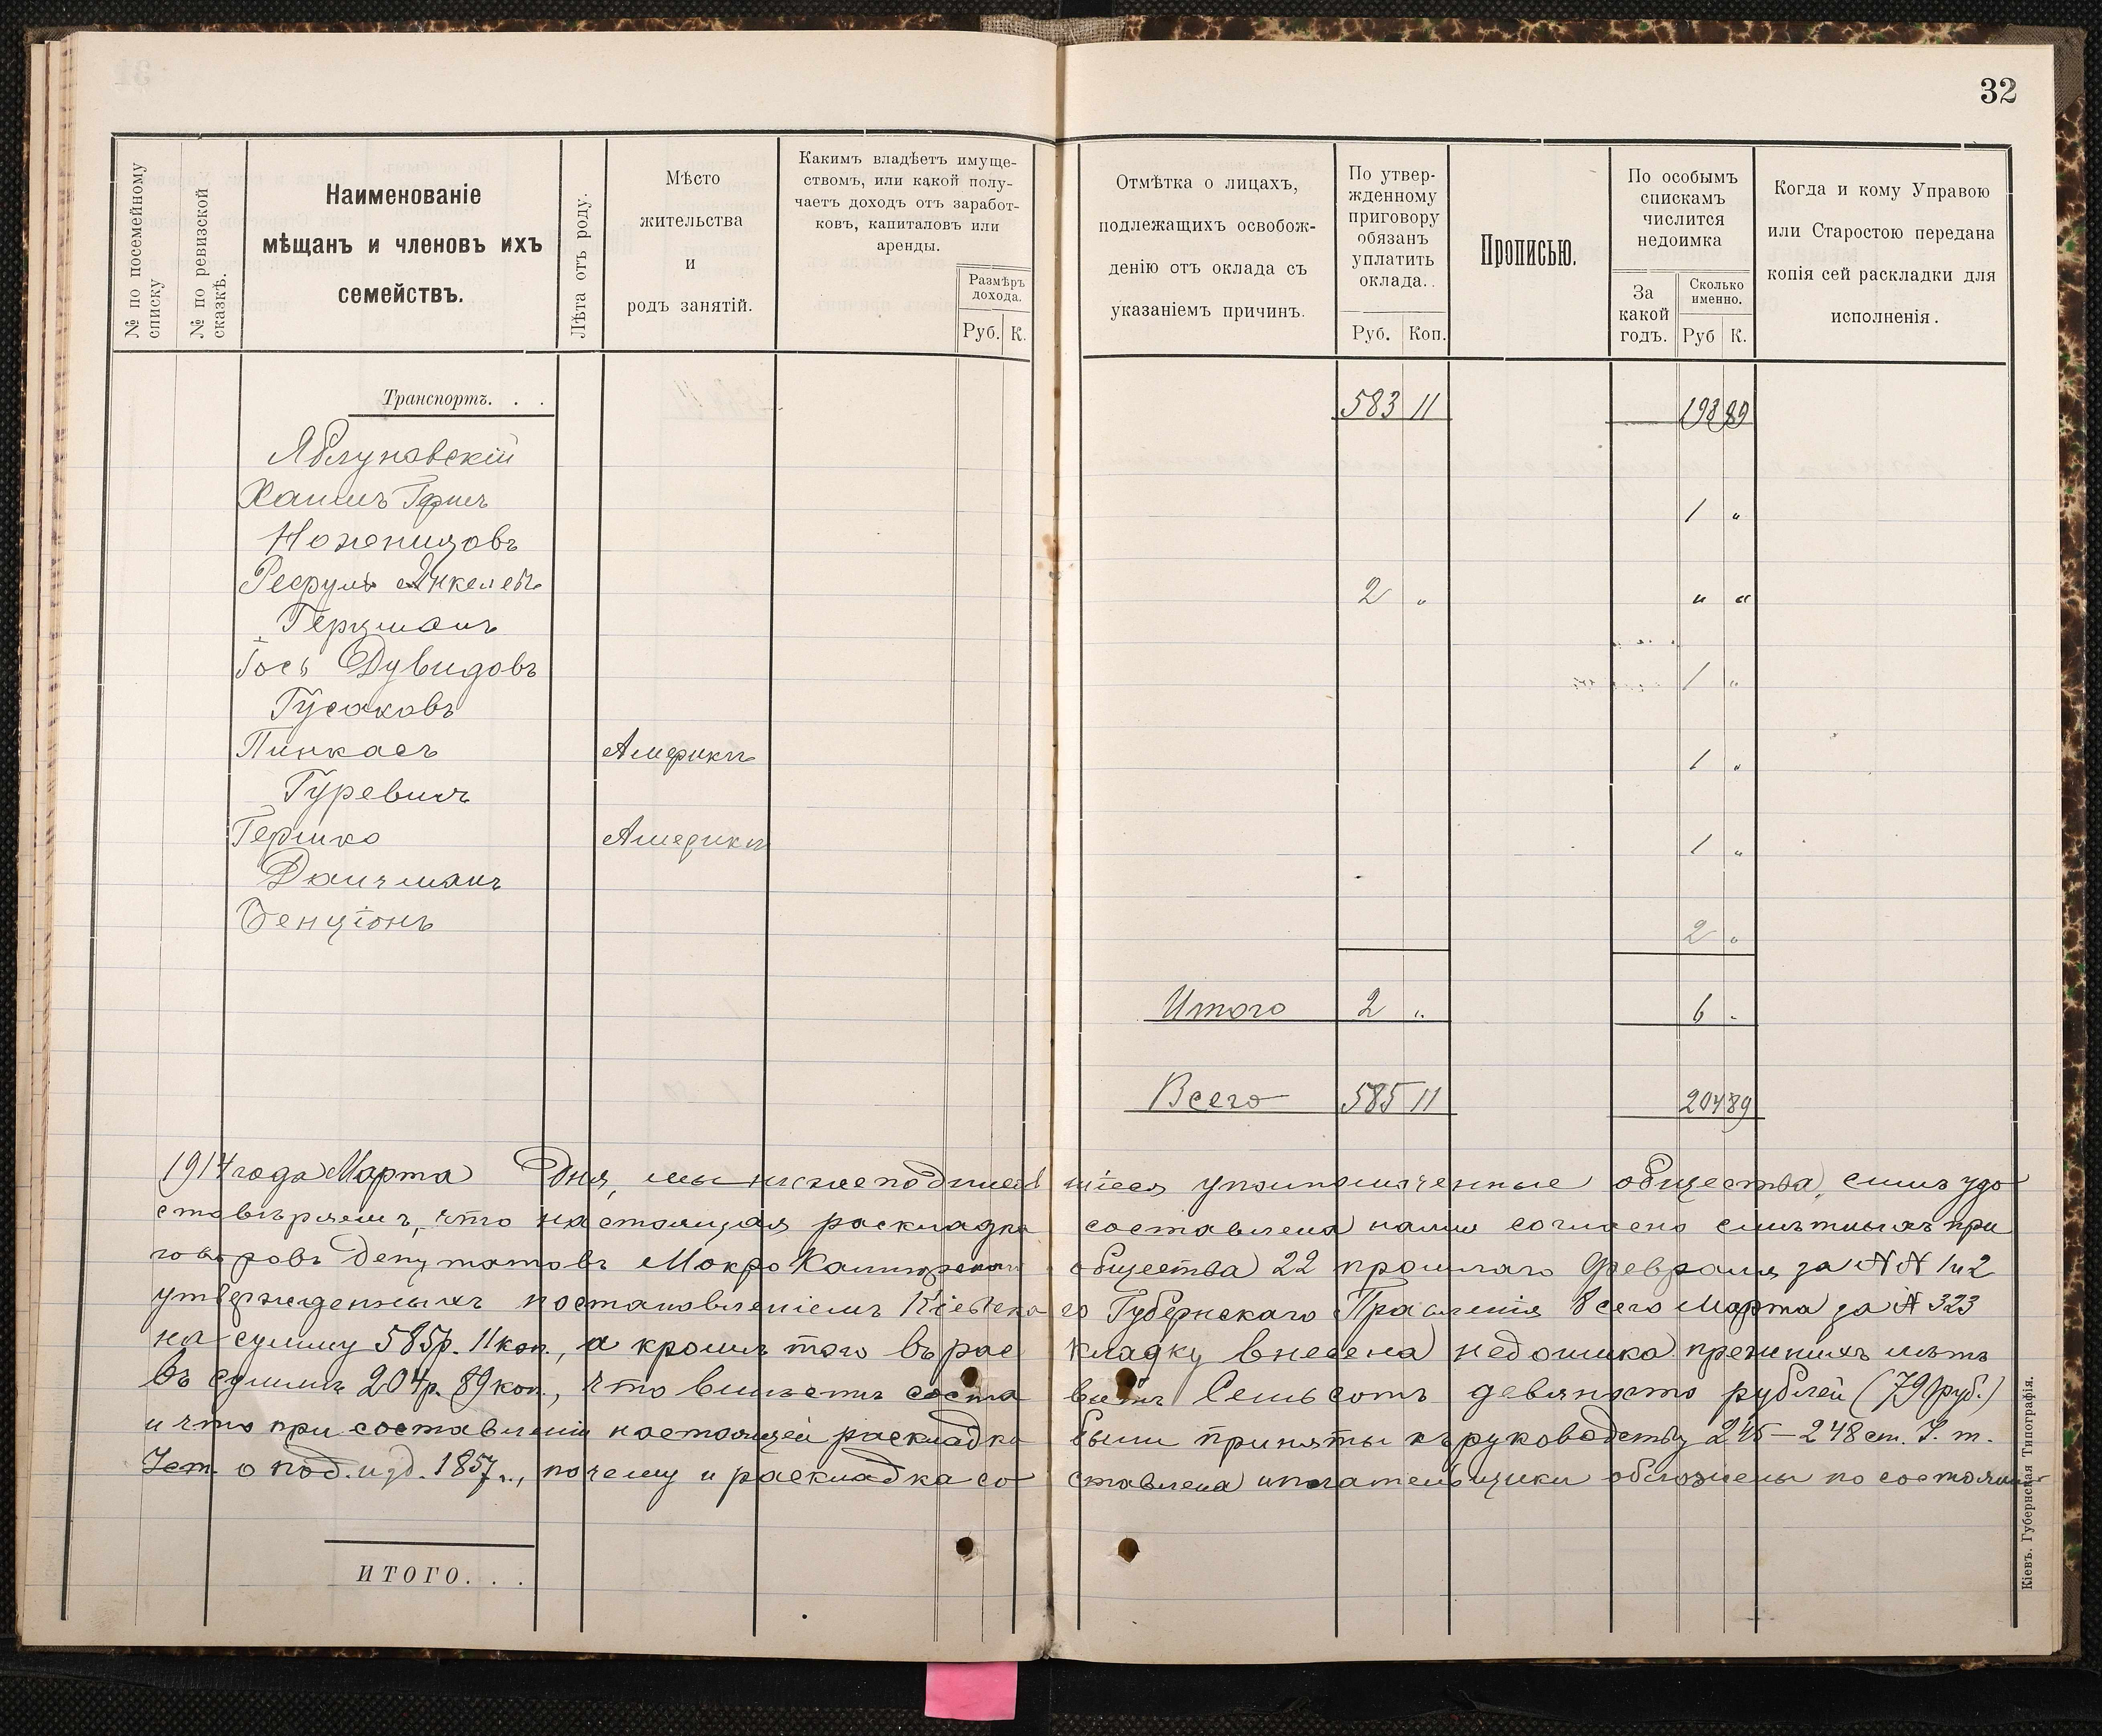 32
№ по посемейному списку
№ по ревизской сказкѣ.
Наименованіе
мѣщанъ и членовъ ихъ
семействъ.
Лѣта отъ роду.
Мѣсто
жительства
и
родъ занятій.
Какимъ владѣетъ имуще-
ствомъ, или какой полу-
чаетъ доходъ отъ заработ-
ковъ, капиталовъ или
аренды.
Размѣръ
дохода.
Руб. К.
Отмѣтка о лицахъ,
подлежащихъ освобож-
денію отъ оклада съ
указаніемъ причинъ.
По утвер-
жденному
приговору
обязанъ
уплатить
оклада.
Руб. Коп.
Прописью.
По особымъ
спискамъ
числится
недоимка
За
какой
годъ.
Сколько
именно.
Руб К.
Когда и кому Управою
или Старостою передана
копія сей раскладки для
исполненія.
Транспортъ. . . 583 11 198 89
Яблуновскій
Хаимъ Гершъ 1 "
Ноженицовъ
2 " " "
Герцманъ
Іось Дувидовъ 1 "
Гусаковъ
Пинкасъ Америкѣ 1 "
Гуревичъ
Гершко Америкѣ 1 "
Данчманъ
Бенціонъ 2 "
Итого 2 " 6 "
Всего 585 11 204 89
1914 года Марта дня, мы нижеподписавшіеся уполномоченные общества, симъ удо
стовѣряемъ, что настоящая раскладка составлена нами согласно смѣтныхъ при
говоровъ депутатовъ Мокро Калигорскаго общества 22 прошлаго Февраля за № № 1 и 2
утвержденныхъ постановленіемъ Кіевскаго Губернскаго Правленія 8 сего Марта за № 323
на сумму 585 р. 11 коп., а кромѣ того въ раскладку внесена недоимка прежнихъ лѣтъ
въ суммѣ 204 р. 89 коп., что вмѣстѣ составитъ Семьсотъ девяносто рублей (790 руб.)
и что при составленіи настоящей раскладки были приняты къ руководству 245—248 ст. У. т.
Уст. о под. изд. 1857 г., почему и раскладка составлена и плательщики обложены по состоянію
ИТОГО. . .
Кіевъ. Губернская Типографія.